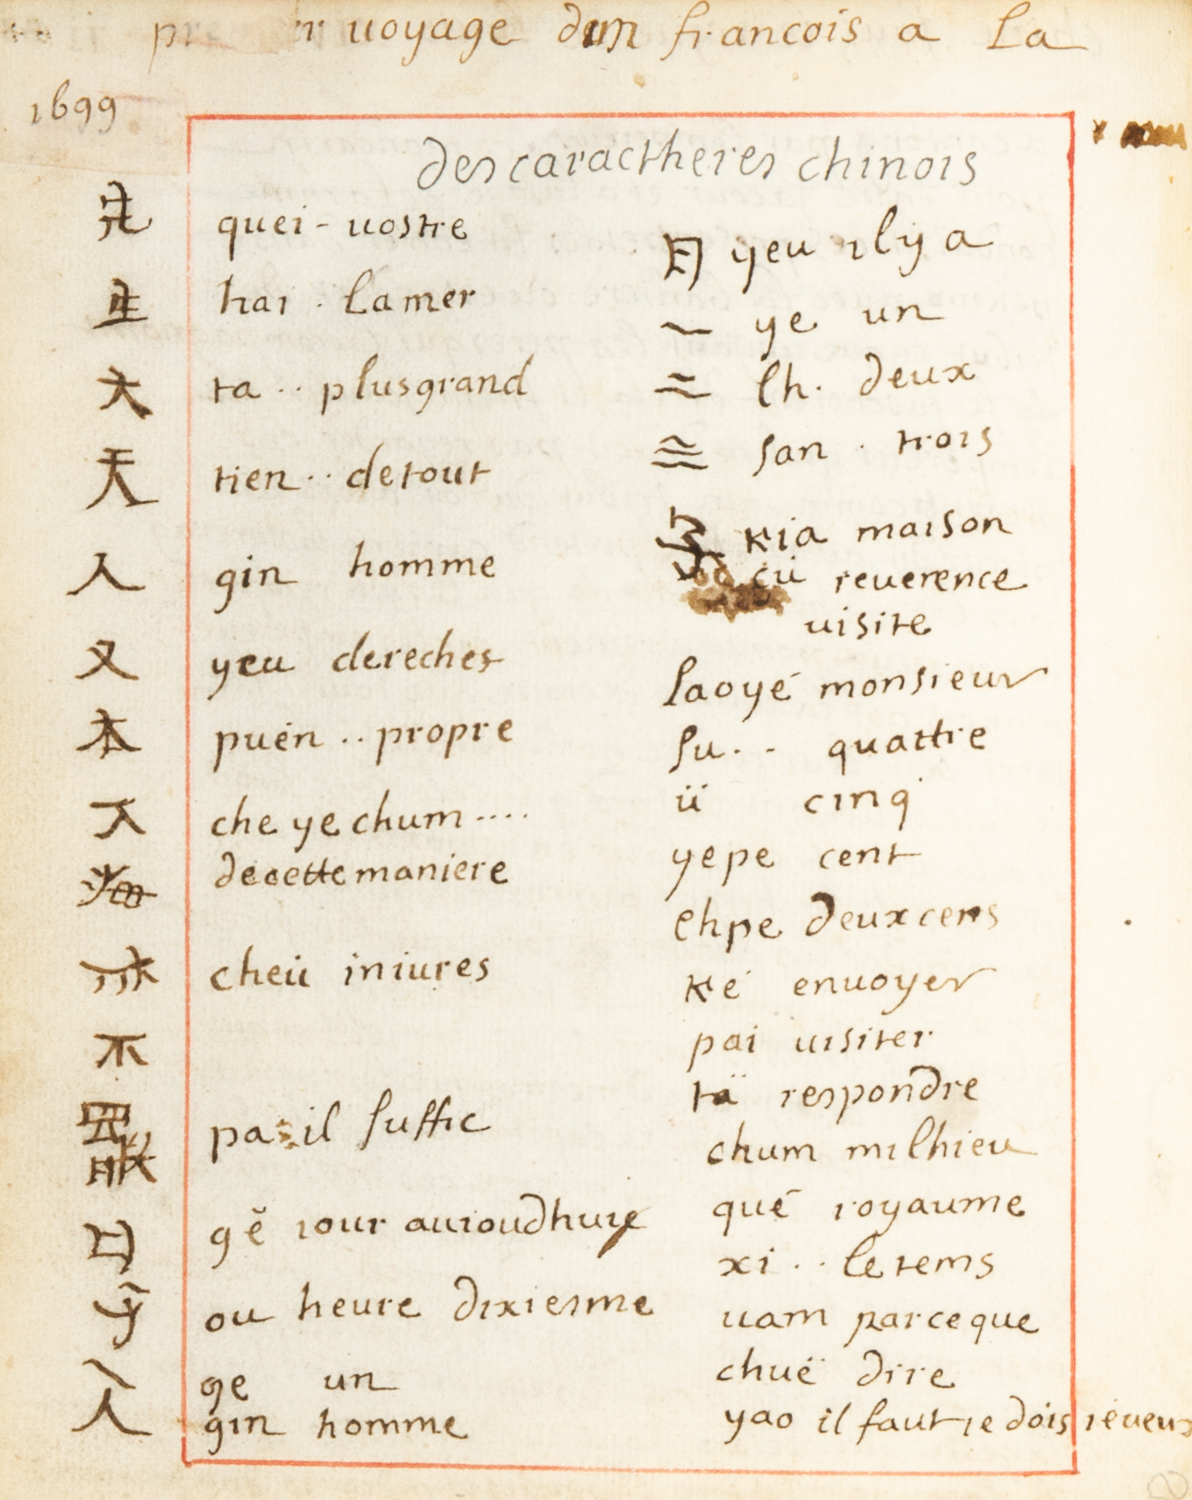 voyage dun francois a La
1699
des caractheres chinois
quei - vostre
hai . la mer
大 ta .. plusgrand
天 tien .. detout
人 gin homme
又 yeu dereches
本 puén .. propre
che ye chum ....
decette maniere
cheü iniures
不
pa il suffic
日 gĕ iour auioudhuy
ou heure dixiesme
ge un
人 gin homme
yeu ily a
一 ye un
二 lh. deux
三 san . trois
kia maison
cü reuerence
uisite
laoyé monsieur
su . . quattre
ü cinq
yepe cent
ehpe deuxcens
ké enuoyer
pai uisiter
tä respondre
chum milhieu
qué royaume
xi .. le tems
uam parceque
chuë dire
yao il faut ie dois ie ueux